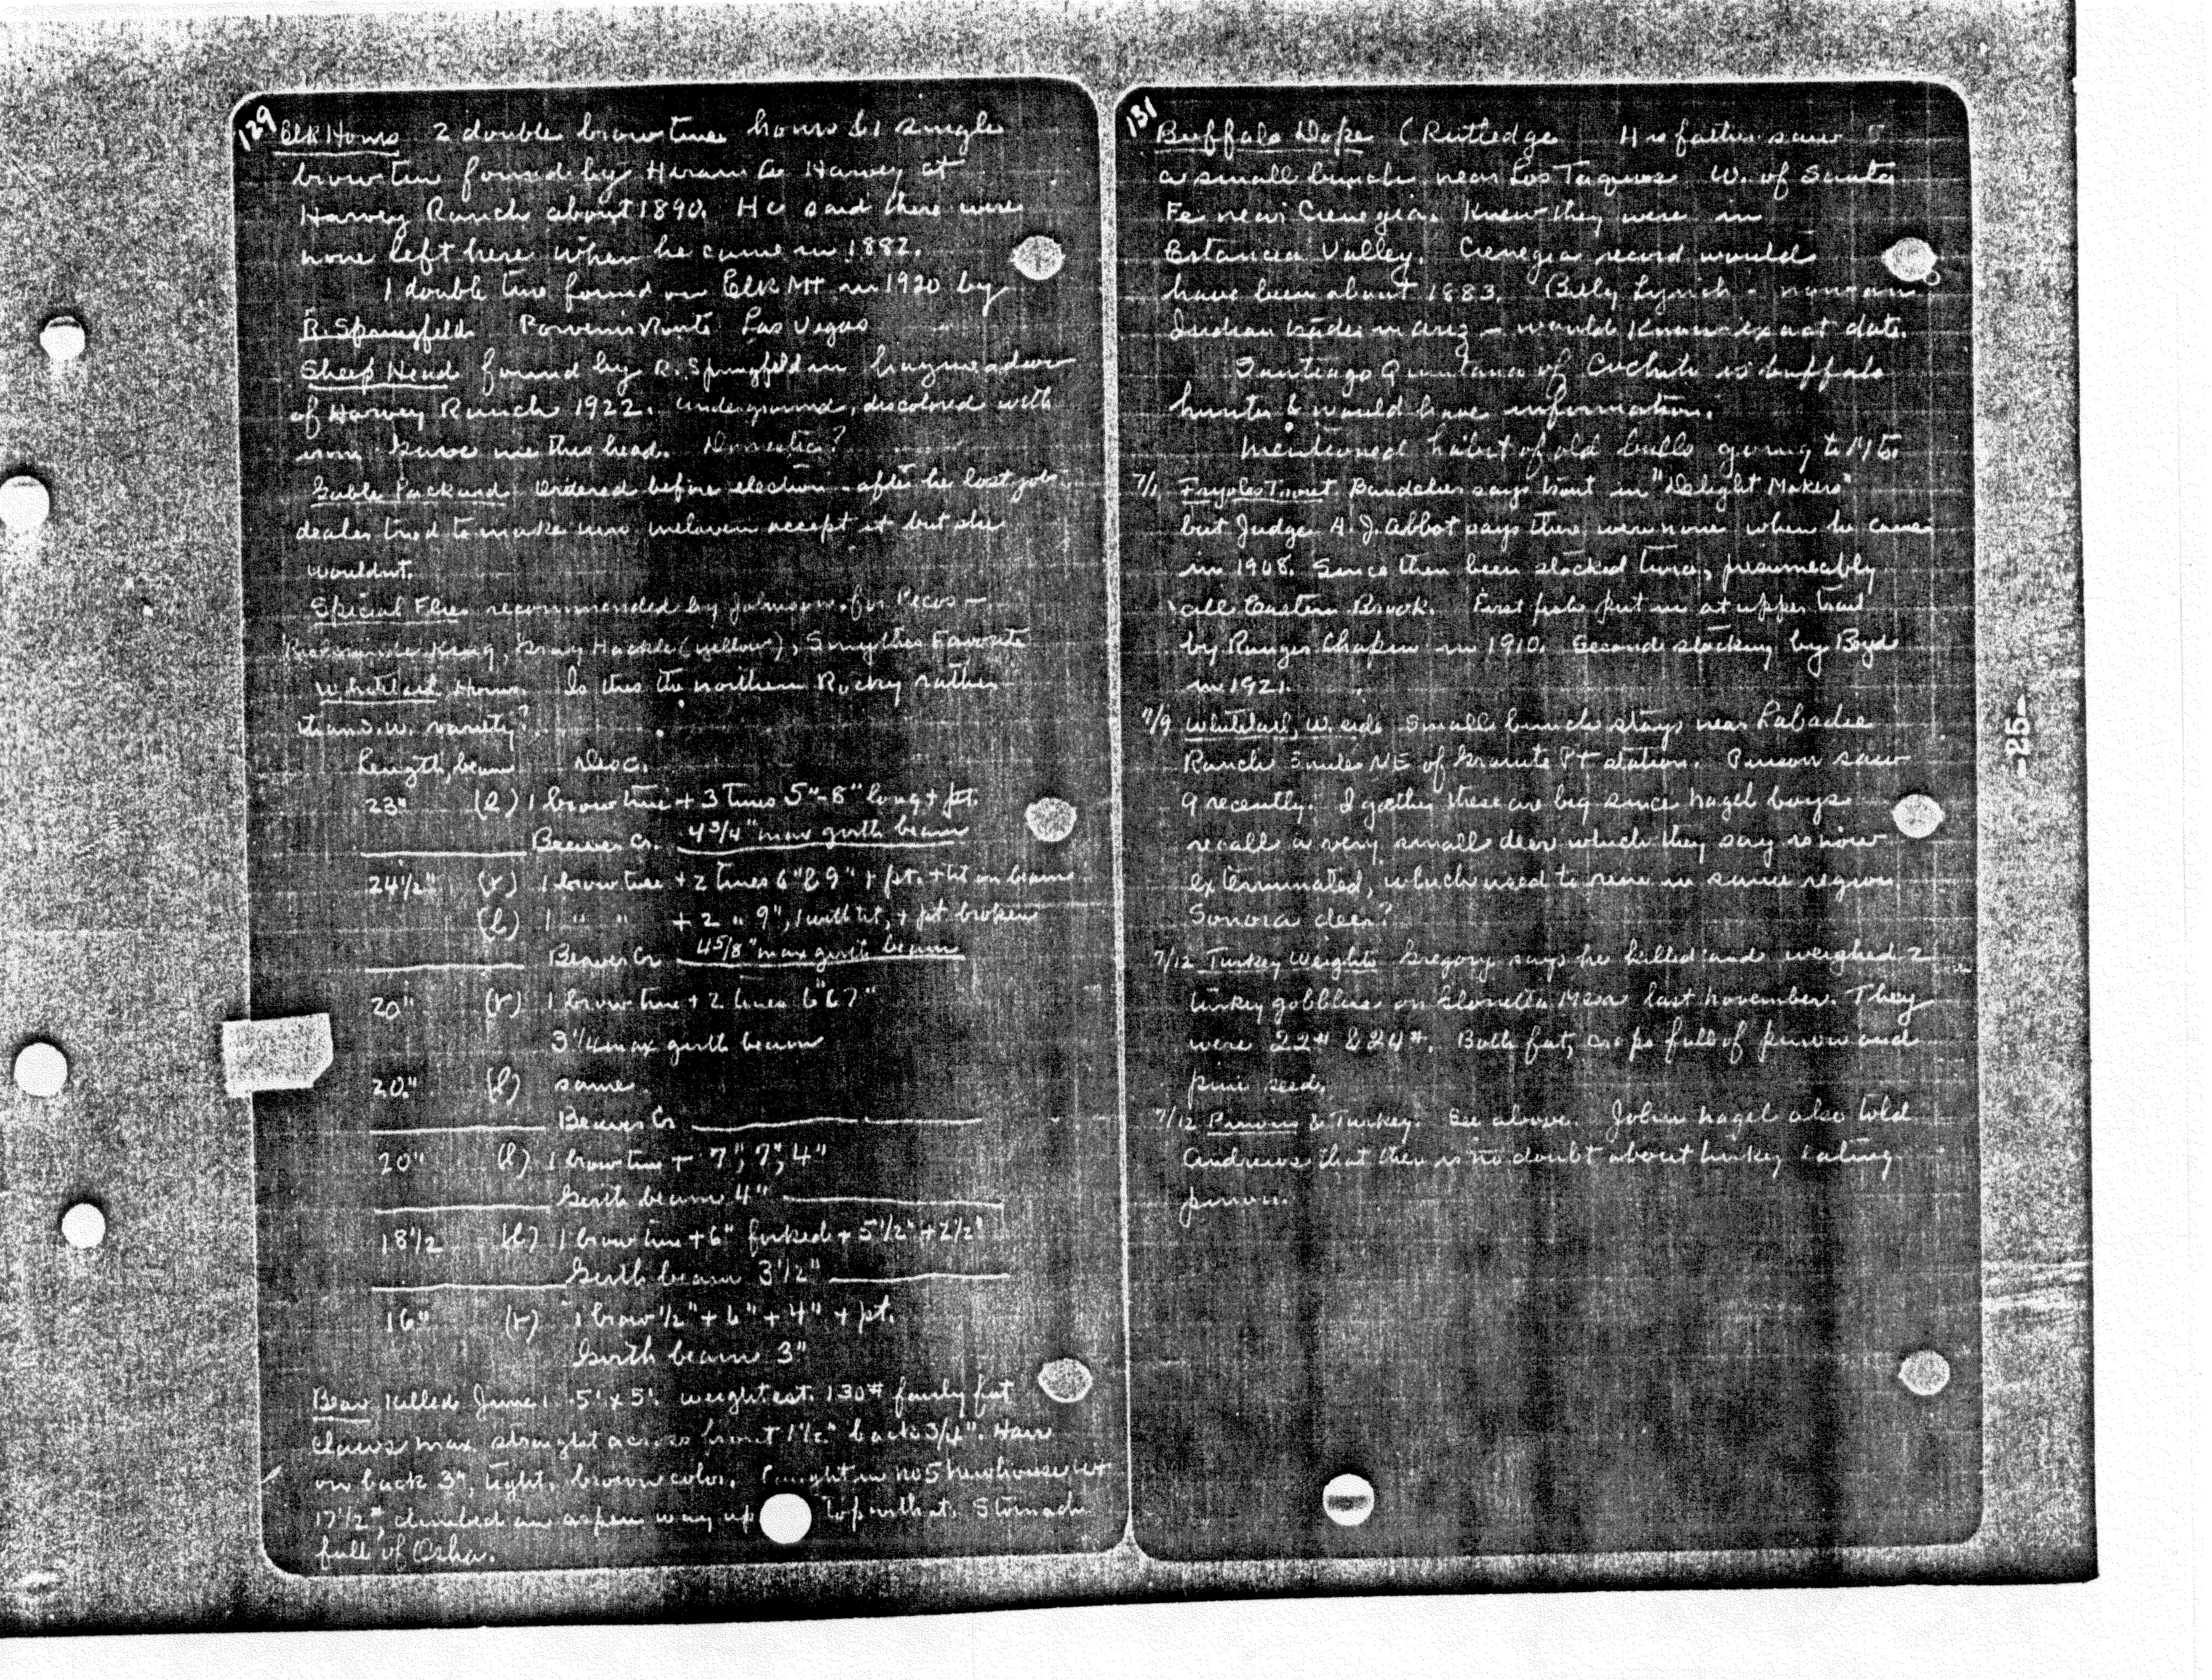 129 Elk Horns 2 double brow tine horns & 1 single
brow tine found by Hiram Harvey at
Harvey Ranch about 1890. He said there were
none left here when he came in 1882.
1 double tine found on Elk Mt in 1920 by
R. Springfeld Route Las Vegas
Sheep Head found by R. Springfeld in hay meadow
of Harvey Ranch 1922. underground, discolored with
iron Gave me this head. Domestic?
Packard Ordered before election - after he lost job
dealer tried to make accept it but she
wouldnt.
Special Flies recommended by Johnson for Pecos -
King, Gray Hackle (yellow), Favorite
Whitetail Horns. Is this the northern Rocky rather
than S.W. variety?
Length, beam Desc.
23" (l) 1 brow tine + 3 tines 5"-8" long + pt.
Beaver Cr. 4 3/4" max girth beam
24 1/2" (r) 1 brow tine + 2 tines 6" & 9" + pt. + tit on beam
(l) 1 " " + 2 " 9", 1 with tit, + pt broken
Beaver Cr 4 5/8" max girth beam
20" (r) 1 brow tine + 2 tines 6" & 7"
3 1/4 max girth beam
20" (l) same
Beaver Cr
20" (l) 1 brow tine + 7", 7", 4"
Girth beam 4"
18 1/2 (l) 1 brow tine + 6" forked + 5 1/2" + 2 1/2"
Girth beam 3 1/2"
16" (r) 1 brow 1/2" + 6" + 4" + pt.
Girth beam 3"
Bear killed June 1. 5' x 5'. weight est. 130# fairly fat
Claws max. straight across front 1 1/2" back 3/4". Hair
on back 3", light, brown color. Caught in no 5 newhouse wt
17 1/2#, climbed an aspen way up top with it. Stomach
full of Osha.
131 Buffalo Dope (Rutledge His father saw 5
a small bunch near Los W. of Santa
Fe near Cienegia. Knew they were in
Estancia Valley. Cienega record would
have been about 1883. Billy Lynch - now an
Indian trader in Ariz - would know exact date.
Santiago Quintana of Cochiti is buffalo
hunter & would have information.
Mentioned habit of old bulls going to Mts.
7/1 Frijoles Trout. Bandelier says trout in "Delight Makers"
but Judge A. J. Abbot says there were none when he came
in 1908. Since then been stocked twice, presumeably
all Eastern Brook. First fish put in at upper trail
by Ranger Chapin in 1910. Second stocking by Boyd
in 1921.
7/9 Whitetail, W. side Small bunch stays near Labadie
Ranch 3 miles NE of Granite Pt station. Pinson saw
9 recently. I gather these are big since Nagel boys
recall a very small deer which they say is now
exterminated, which used to in same region
Sonora deer?
7/12 Turkey Weights Gregory says he killed and weighed 2
turkey gobblers on Glorieta Mesa last November. They
were 22# & 24#. Both fat, crops full of pinon and
pine seed.
7/12 Pinons & Turkey. See above. John Nagel also told
Andrews that there is no doubt about turkey eating
pinon.
-25-